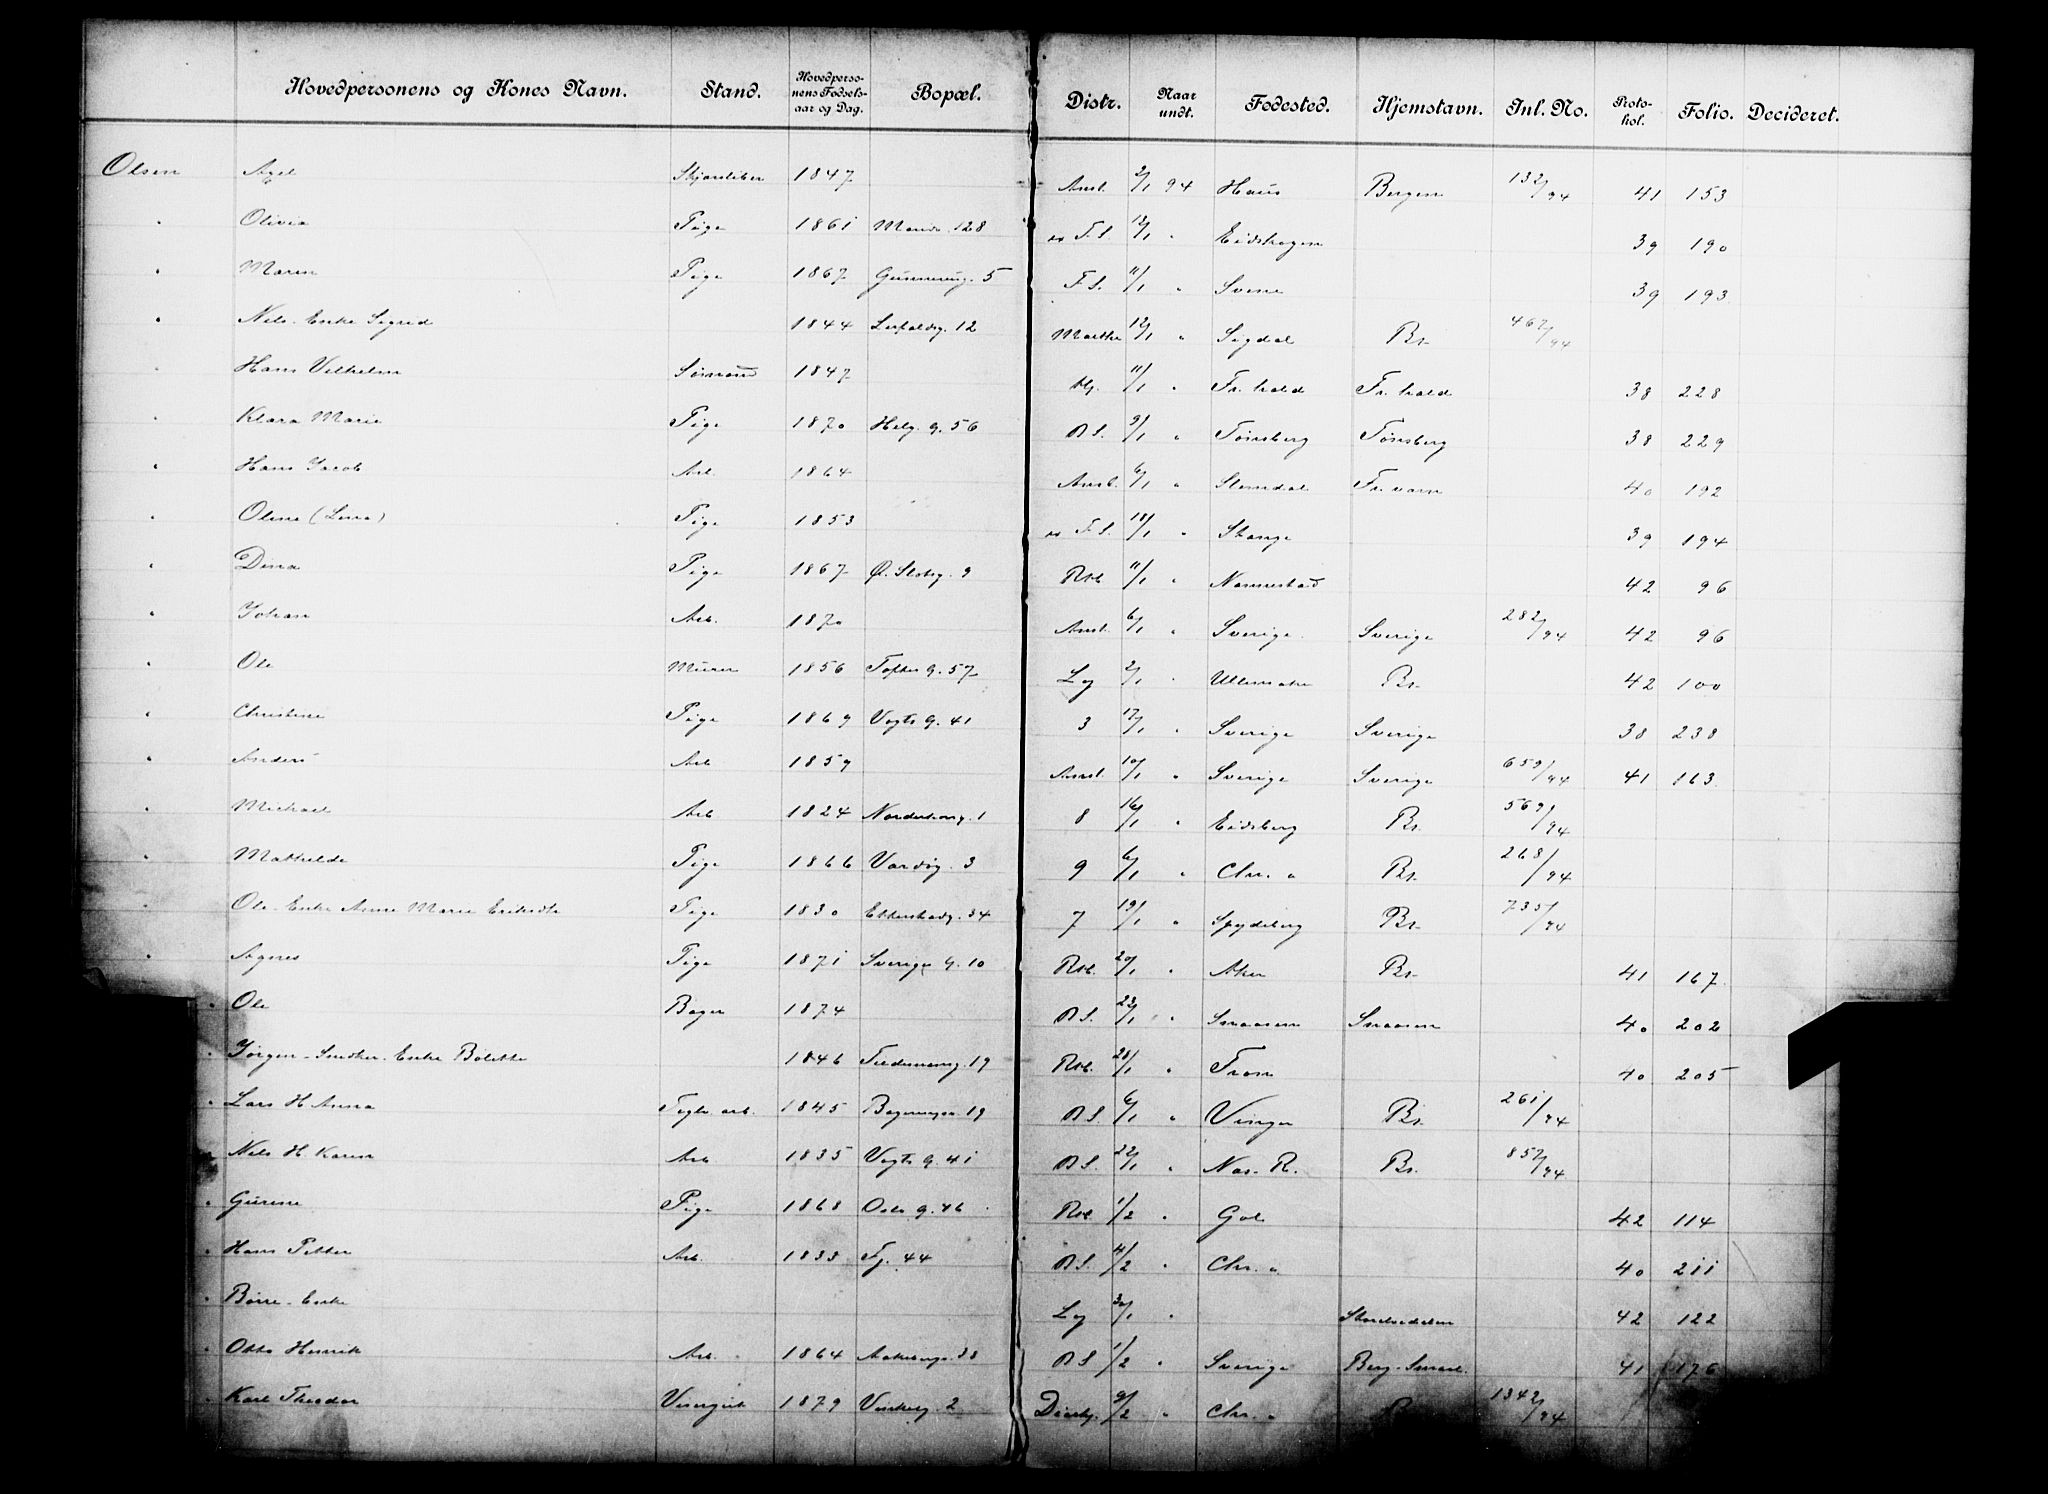 Hovedpersonens og Kones Navn. Stand. Hovedperso-nens Fødsels-aar og Dag. Bopæl. Distr. Naar undt. Fødested. Hjemstavn. Inl. No. Proto-kol. Folio. Decideret.
Olsen Axel 1847 Anst. 2/1 94 Haus Bergen 132/94 41 153
" Olivia Pige 1861 128 F.S. 12/1 " Eidskogen 39 190
" Maren Pige 1867 5 F.S. 11/1 " Svene 39 193
" Nils. Enke Sigrid 1844 12 12/1 " Sigdal Br. 467/94
" Hans Vilhelm Sømand 1847 11/1 " Fr.hald Fr.hald 38 228
" Klara Marie Pige 1870 Helg. g. 56 B.S. 9/1 " Tønsberg Tønsberg 38 229
" Hans Jacob Arb. 1864 Anst. 6/1 " Fr.værn 40 192
" Oline (Lina) Pige 1853 F.S. 18/1 " Stange 39 194
" Dina Pige 1867 Ø. Slotsg. 9 Rst. 11/1 " Nannestad 42 96
" Johan Arb. 1870 Anst. 6/1 " Sverige Sverige 282/94 42 96
" Ole Murer 1856 Toftes g. 57 Lg 2/1 " Ullensaker Br. 42 100
" Christine Pige 1869 Vogts g. 41 3 17/1 " Sverige Sverige 38 238
" Anders Arb 1859 Anst. 10/1 " Sverige Sverige 659/94 41 163
" Michael Arb 1824 1 8 16/1 " Eidsberg Br. 569/94
" Mathilde Pige 1866 Vardøg. 3 9 6/1 " Chr. a Br. 268/94
" Ole. Enke Anne Marie Eriksdt. Pige 1830 Etterstadg. 34 7 19/1 " Spydeberg Br. 735/94
" Agnes Pige 1871 Sverigs g. 10 Rst. 20/1 " Aker Br. 41 167
" Ole Bager 1874 B.S. 23/1 " Snaasen Snaasen 40 202
" Jørgen - Snedker. Enke Bolette 1846 19 Rst. 28/1 " 40 205
" Lars H Anna Teglv. arb. 1845 19 B.S. 6/1 " Vinger Br. 261/94
" Nils H Karen Arb 1835 Vogts g. 41 B.S. 22/1 " Nes. R. Br. 857/94
" Gurine Pige 1868 Oslo g. 46 Rst. 1/2 " Gol 42 114
" Hans Petter Arb. 1833 44 B.S. 4/2 " Chr. a 40 211
" Børre - Enke Lg 30/1 " 42 122
" Otto Henrik Arb. 1864 38 B.S. 1/2 " Sverige 41 176
" Karl Theodor Visergut 1879 2 9/2 " Chr. a Br. 1342/94